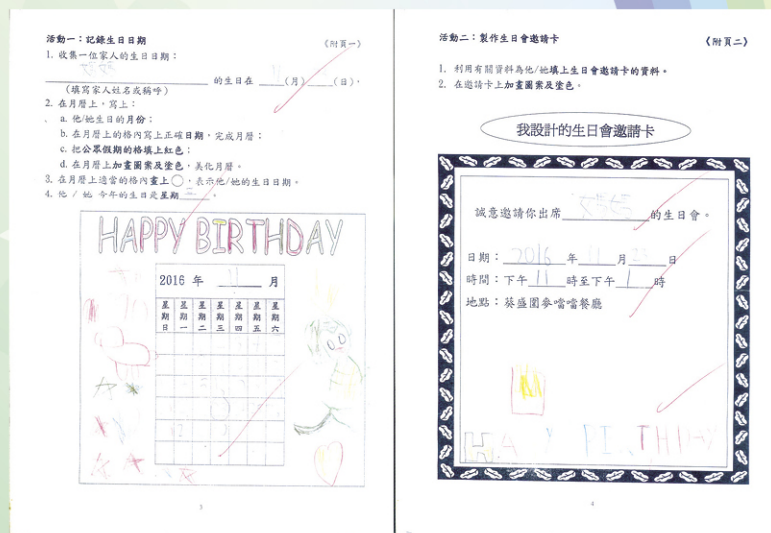 活動一：記錄生日日期
《附頁一》
1. 收集一位家人的生日日期：
的生日在____(月)____(日)，
(填寫家人姓名或稱呼)
2. 在月曆上，寫上：
a. 他/她生日的月份；
b. 在月曆上的格內寫上正確日期，完成月曆；
c. 把公眾假期的格填上紅色；
d. 在月曆上加畫圖案及塗色，美化月曆。
3. 在月曆上適當的格內畫上○，表示他/她的生日日期。
4. 他 / 她 今年的生日是星期三。
HAPPY BIRTHDAY
2016 年 11 月
星期日 星期一 星期二 星期三 星期四 星期五 星期六
3
活動二：製作生日會邀請卡
《附頁二》
1. 利用有關資料為他/她填上生日會邀請卡的資料。
2. 在邀請卡上加畫圖案及塗色。
我設計的生日會邀請卡
誠意邀請你出席____的生日會。
日期：2016 年 11 月 23 日
時間：下午 11 時至下午 1 時
地點：葵盛圍麥噹噹餐廳
4